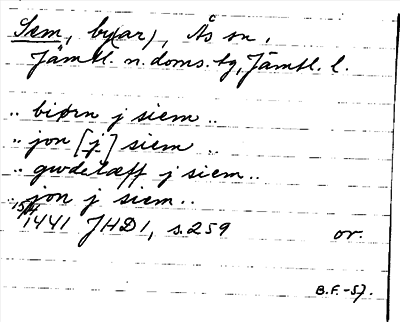 Sem, by(ar), Ås sn,
Jämtl. n. doms. tg, Jämtl. l.
.. biørn j siem ..
.. jon [j] siem ..
.. gwdelæff j siem ..
.. jon j siem ..
1441 JHD1, s. 259 or.
B.F.-57.